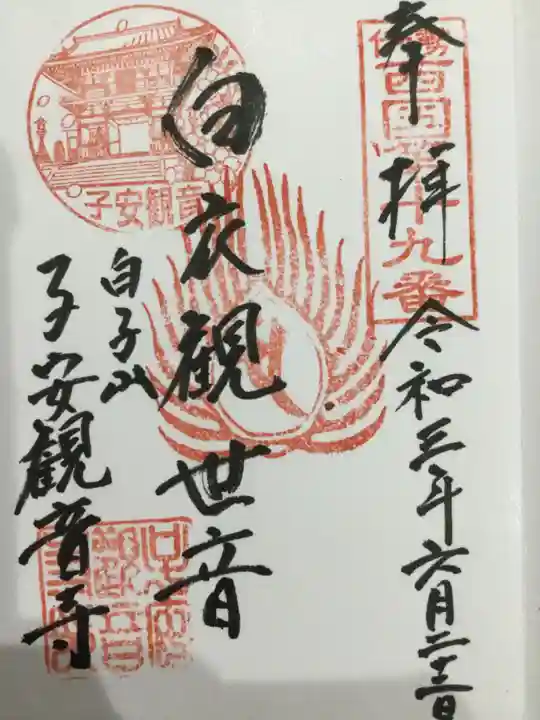 奉拝
伊勢西国第十九番
令和三年六月二十三日
白衣観世音
白子山
子安観音寺
子安観音